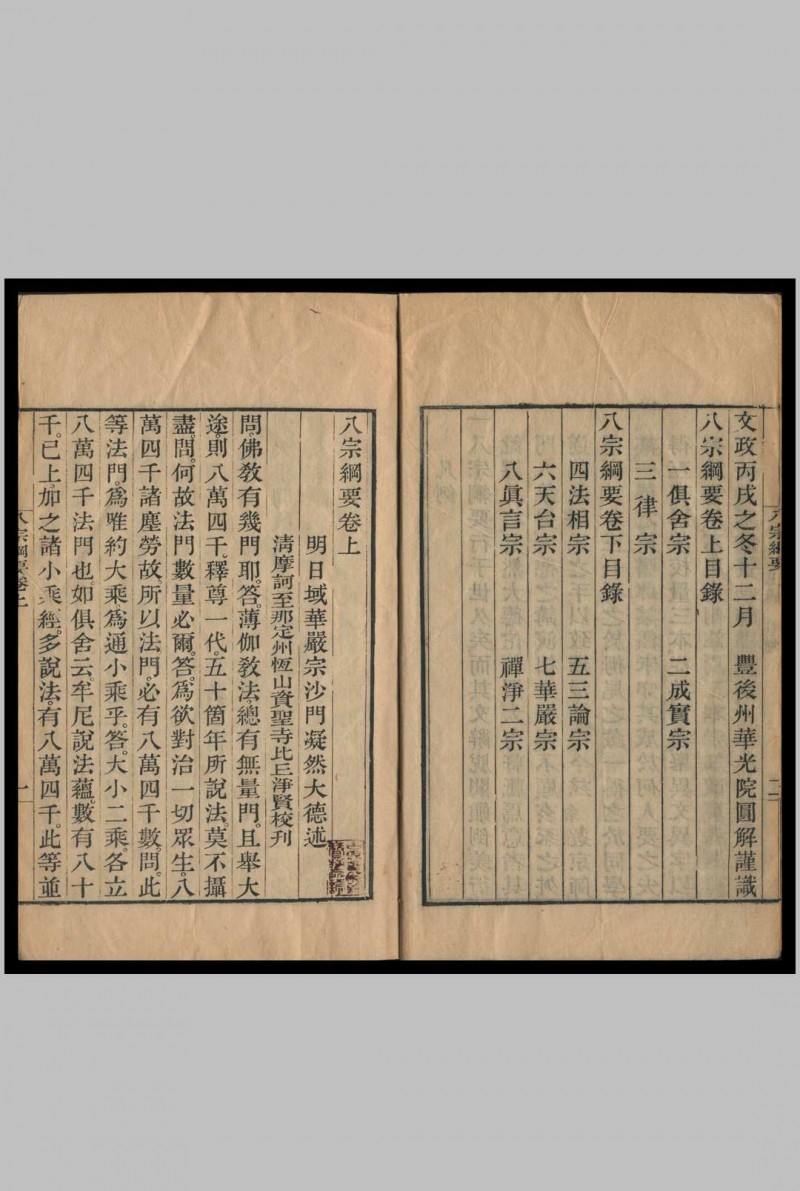 文政丙戌之冬十二月　豐後州華光院圓解謹識
八宗綱要卷上目錄
一俱舍宗　二成實宗
三律宗
八宗綱要卷下目錄
四法相宗　五三論宗
六天台宗　七華嚴宗
八眞言宗　禪淨二宗
八宗綱要
二
八宗綱要卷上
明日域華嚴宗沙門凝然大德述
清摩訶至那定州恆山資聖寺比丘淨賢校刊
問。佛敎有幾門耶。答。薄伽敎法。總有無量門。且舉大
途。則八萬四千。釋尊一代。五十箇年所說法。莫不攝
盡。問。何故法門數量必爾。答。爲欲對治一切眾生。八
萬四千諸塵勞故。所以法門。必有八萬四千數。問。此
等法門。爲唯約大乘。爲通小乘乎。答。大小二乘。各立
八萬四千法門也。如俱舍云。牟尼說法蘊。數有八十
千。已上。加之諸小乘經。多說法。有八萬四千。此等並
八宗綱要卷上
一